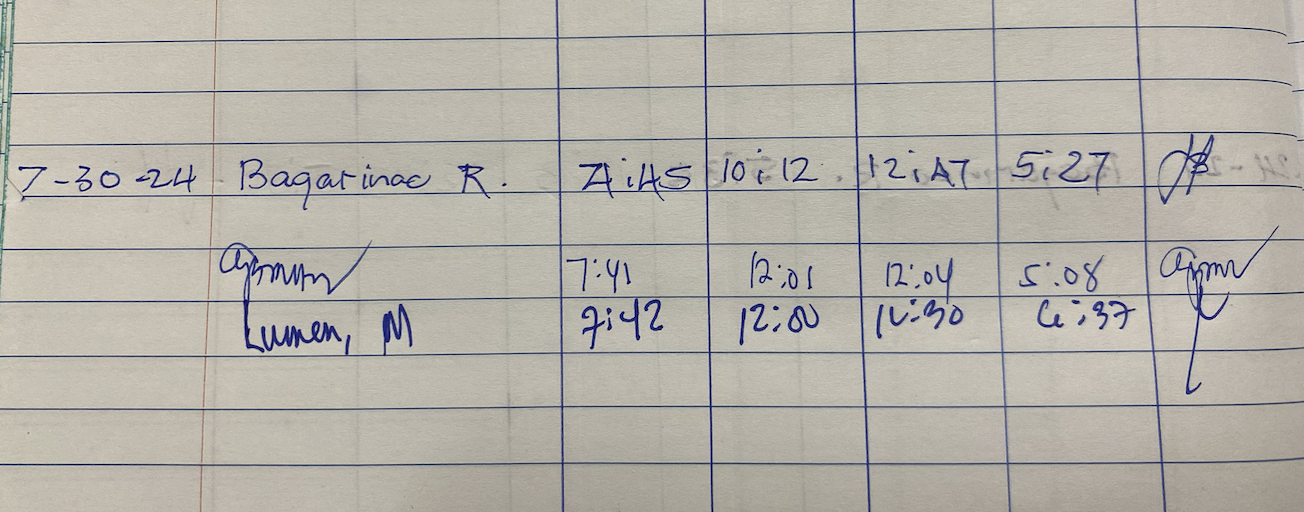 7-30-24 Bagarinao R. 7:45 10:12 12:47 5:27
7:41 12:01 12:04 5:08
Lumen, M 7:42 12:00 12:30 6:37